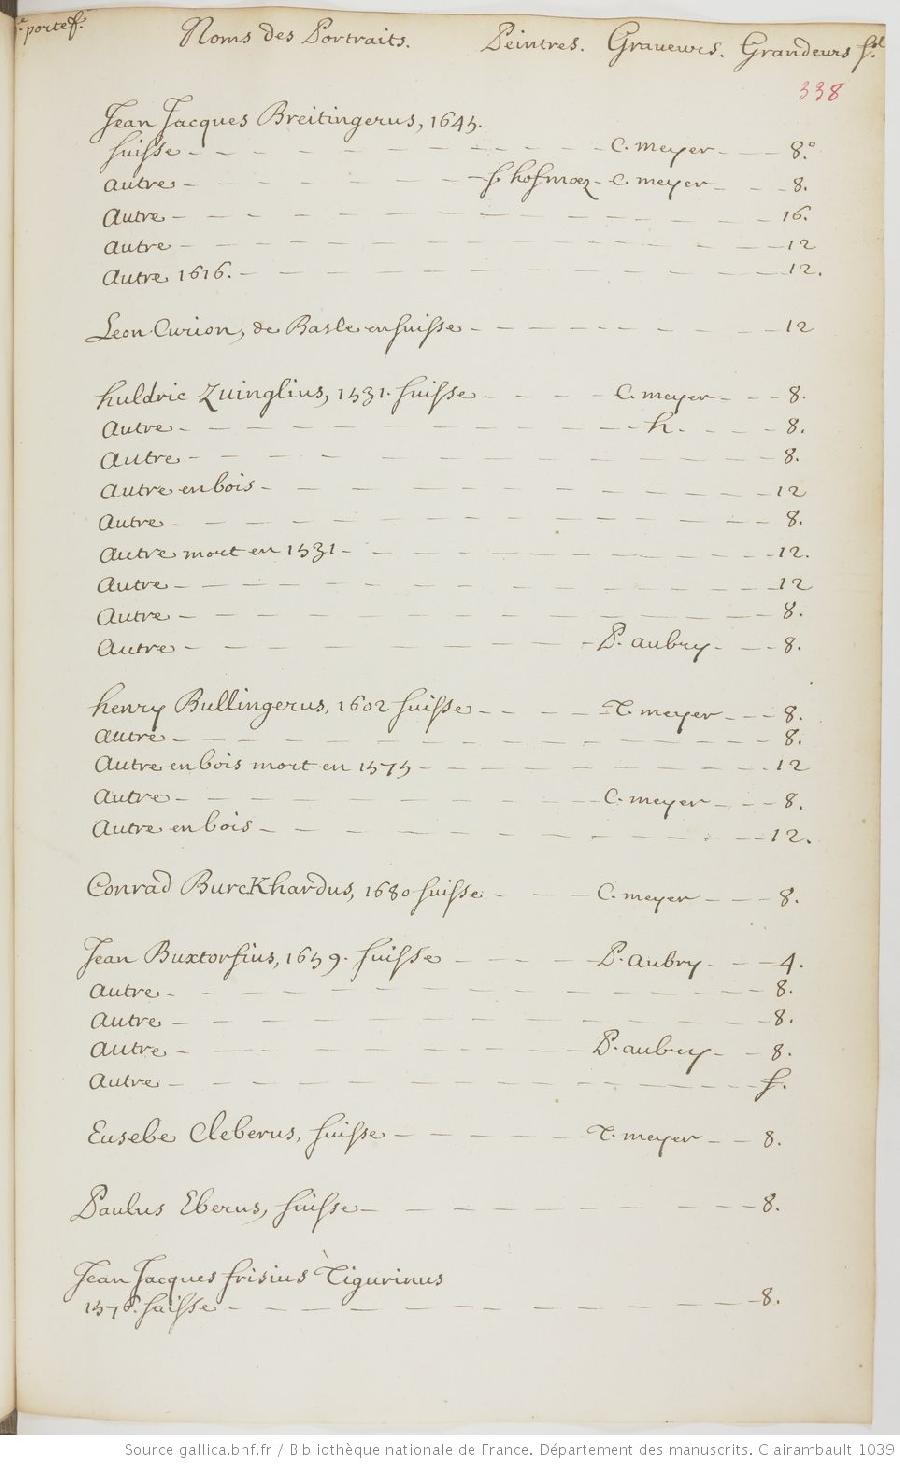 portef.
Noms des Portraits. Peintres. Graveurs. Grandeurs
338
Jean Jacques Breitingerus, 1645.
suisse - - - C. meyer - - 8.°
autre - - - C. meyer - - 8.
autre - - - 16.
autre - - - 12
autre 1616. - - - 12.
Leon Curion, de Basle en suisse - - - 12
huldric Zuinglius, 1531. suisse - - - C. meyer - - 8.
autre - - - h. - - 8.
autre - - - 8.
autre en bois - - - 12
autre - - - 8.
autre mort en 1531 - - - 12.
autre - - - 12
autre - - - 8.
autre - - - P. aubry - - 8.
henry Bullingerus, 1602 suisse - - - T. meyer - - 8.
autre - - - 8.
autre en bois mort en 1575 - - - 12
autre - - - C. meyer - - 8.
autre en bois - - - 12.
Conrad BurcKhardus, 1680 suisse - - - C. meyer - - 8.
Jean Buxtorfius, 1659. suisse - - - P. aubry - - 4.
autre - - - 8.
autre - - - 8.
autre - - - P. aubry - - 8.
autre - - - f.
Eusebe Cleberus, suisse - - - T. meyer - - 8.
Paulus Eberus, suisse - - - 8.
Jean Jacques frisius Tigurinus
suisse - - - 8.
Source gallica.bnf.fr / Bibliothèque nationale de France. Département des manuscrits. Clairambault 1039